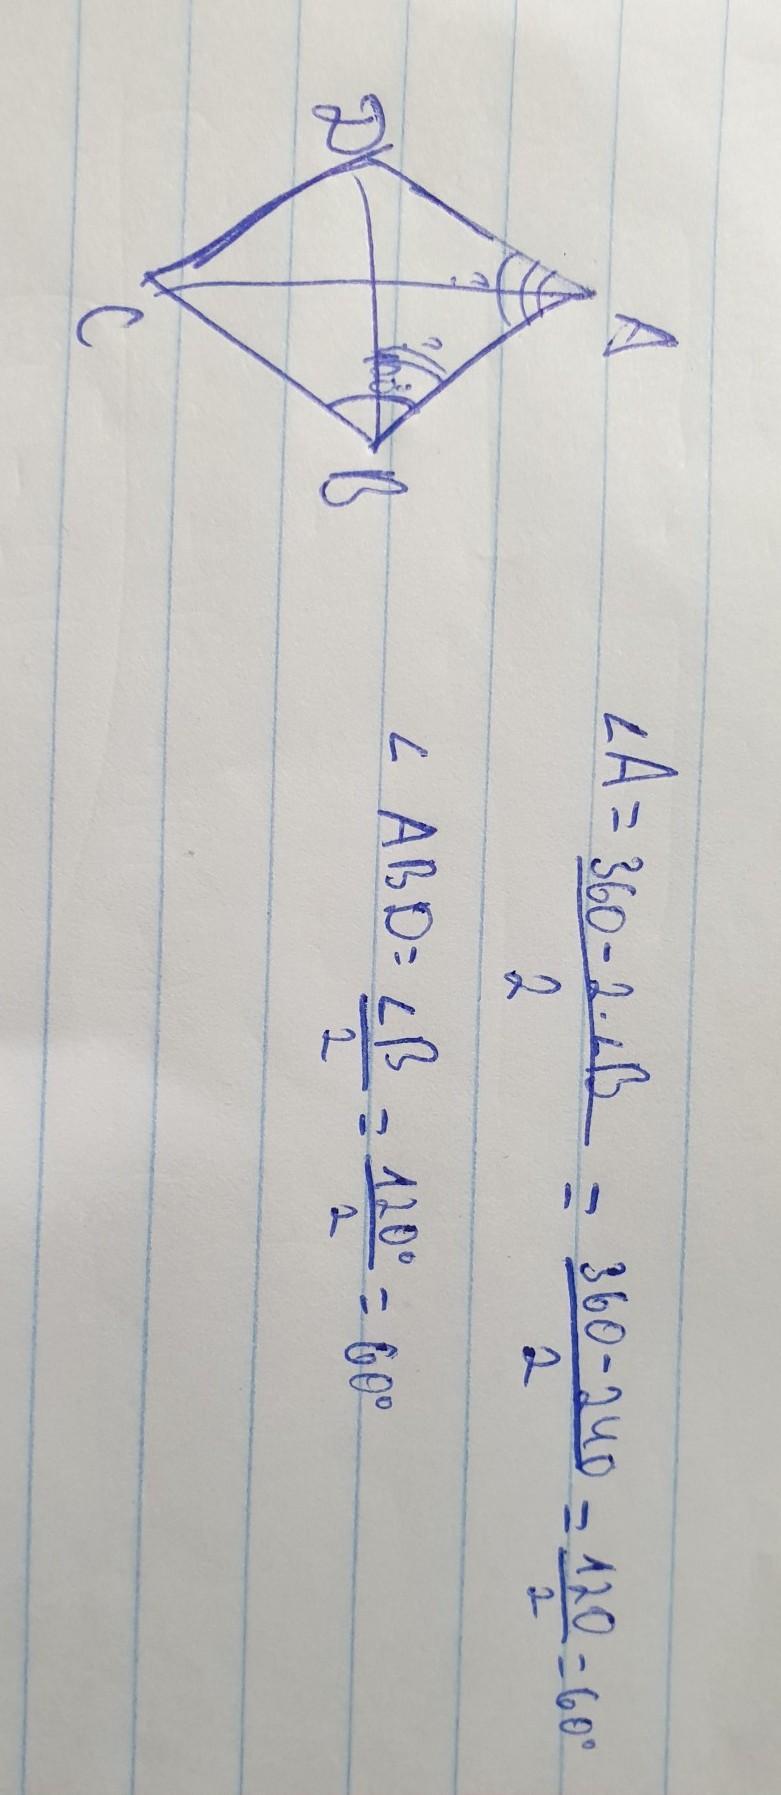 A
D
B
C
?
?
∠A = 360 - 2·∠B / 2 = 360 - 240 / 2 = 120 / 2 = 60°
∠ABD = ∠B / 2 = 120° / 2 = 60°